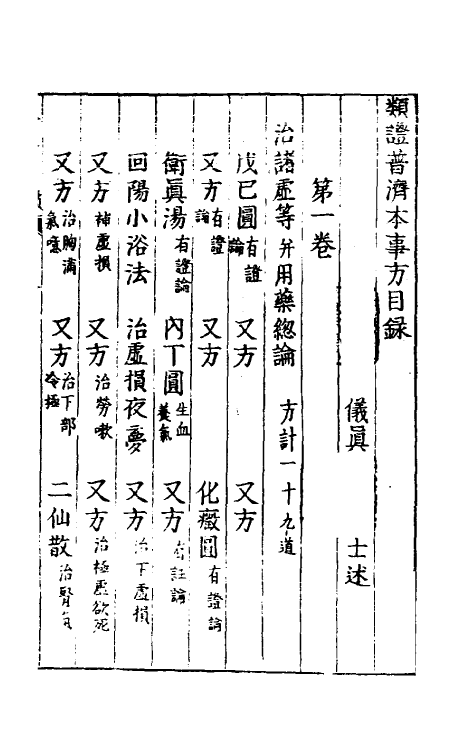 類證普濟本事方目録
儀眞 士述
第一卷
治諸虛等并用藥總論 方計一十九道
戊巳圓有證論 又方 又方
又方有證論 又方 化癥圓有證論
衛眞湯有證論 內丁圓生血養氣 又方有証論
回陽小浴法 治虛損夜夢 又方治下虛損
又方補虛損 又方治勞嗽 又方治極虛欲死
又方治胸滿氣噎 又方治下部冷極 二仙散治腎氣